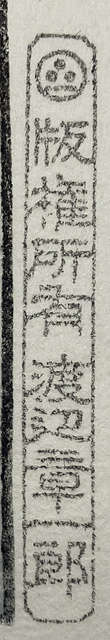 版権所有渡辺章一郎